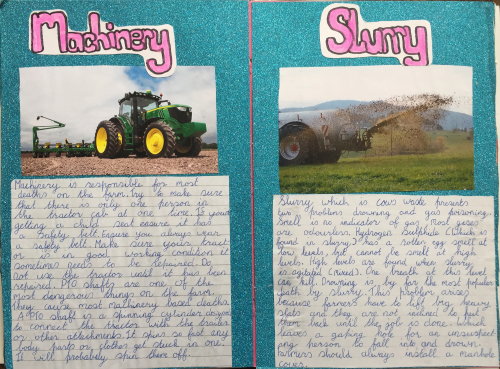 Machinery
Machinery is responsible for most
deaths on the farm. Try to make sure
that there is only one person in
the tractor cab at one time. If your
getting a child seat ensure it has
a safety belt. Ensure you always wear
a safety belt. Make sure your tract-
or is in good working condition it
sometimes needs to be repaired. Do
not use the tractor until it has been
repaired. PTO shafts are one of the
most dangerous things on the farm
they cause most machinery based deaths.
A PTO shaft is a spinning cylinder driven
to connect the tractor with the trailer
or other attachments. It spins so fast any
body parts or clothes get stuck in one.
It will probably spin them off.
Slurry
Slurry which is cows waste presents
two problems drowning and gas poisoning.
Smell is no indicator of gas most gases
are odourless. Hydrogen Sulphide (Which is
found in slurry) has a rotten egg smell at
low levels but cannot be smelt at high
levels. High levels are found when slurry
is agitated (mixed). One breath at this level
can kill. Drowning is by far the most popular
death by slurry. This problem arises
because farmers have to lift big heavy
slats and they are not inclined to put
them back until the job is done. Which
leaves a gaping hole for an unsuspect-
ing person to fall into and drown.
Farmers should always install a manhole
cover.